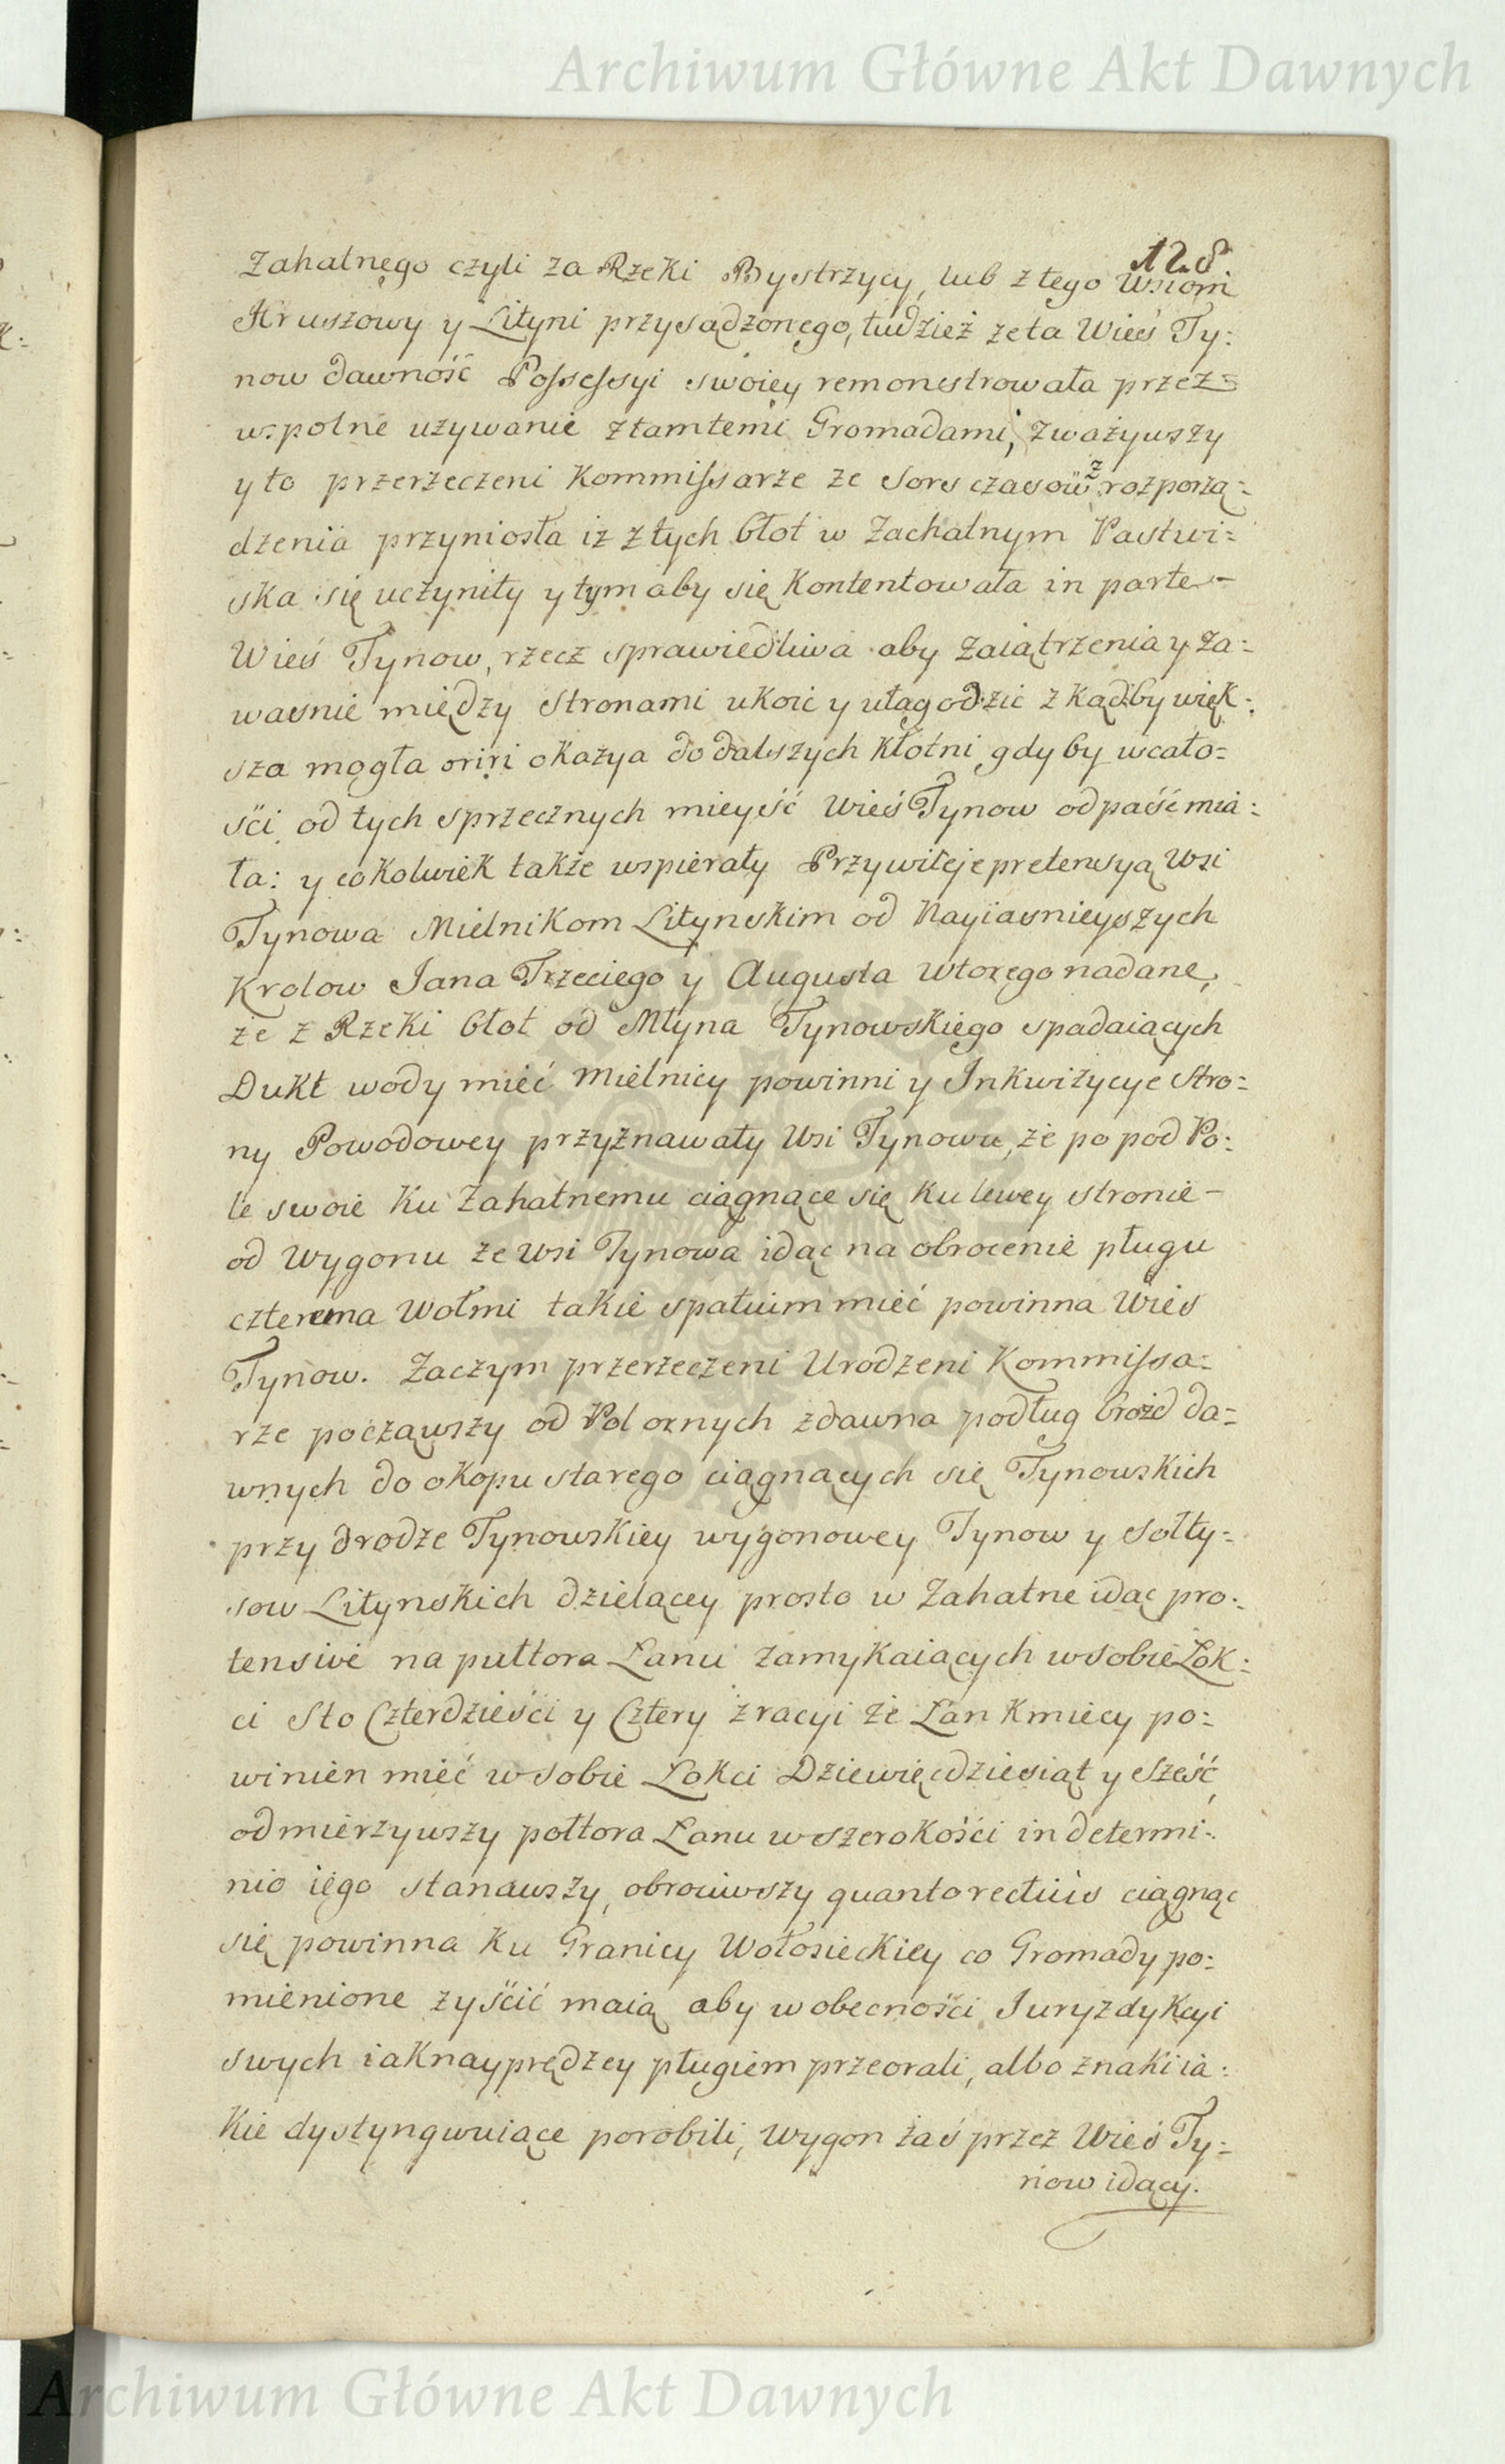 Archiwum Główne Akt Dawnych
128
Zahatnego czyli za Rzeki Bystrzycy, lub z tego Wsiom
Hruszowy y Lityni przysądzonego, tudzież ze ta Wieś Ty:
now dawność Possessyi swoiey remonstrowała przez
wspolne używanie z tamtemi Gromadami, zważywszy
y to przerzeczeni Kommissarze że sors czasow z rozporzą:
dzenia przyniosła iż z tych błot w Zachatnym Pastwi:
ska się uczyniły y tym aby się Kontentowała in parte
Wieś Tynow, rzecz sprawiedliwa aby zaiątrzenia y za:
wasnie między stronami ukoic y ułagodzic z kądby więk:
sza mogła oriri okazya do dalszych kłotni gdyby w cało:
ści od tych sprzecznych mieyść Wieś Tynow odpaść mia:
ła: y cokolwiek także wspierały Przywileje pretensyą Wsi
Tynowa Mielnikom Litynskim od Nayiasnieyszych
Krolow Jana Trzeciego y Augusta Wtorego nadane,
że z Rzeki błot od Młyna Tynowskiego spadaiących
Dukt wody mieć Mielnicy powinni y Inkwizycye Stro:
ny Powodowey przyznawały Wsi Tynowu, że po pod Po:
le swoie Ku Zahatnemu ciągnące się Ku lewey stronie
od Wygonu ze Wsi Tynowa idąc na obrocenie pługu
czterema Wołmi takie spatium mieć powinna Wies
Tynow. Zaczym przerzeczeni Urodzeni Kommissa:
rze począwszy od Pol ornych zdawna podług brozd da:
wnych do okopu starego ciągnących się Tynowskich
przy drodze Tynowskiey wygonowey Tynow y Sołty:
sow Litynskich dzielącey prosto w Zahatne idąc pro:
tensive na pułtora Lanu zamykaiących w sobie Łok:
ci Sto Czterdzieści y Cztery z racyi że Łan Kmiecy po:
winien mieć w sobie Łokci Dziewięcdziesiąt y sześć,
odmierzywszy połtora Lanu w szerokości in determi:
nio iego stanąwszy, obrociwszy quanto rectius ciągnąc
się powinna Ku Granicy Wołosieckiey co Gromady po:
mienione zyścić maią aby w obecności Juryzdykcyi
swych iak nayprędzey pługiem przeorali, albo znaki ia:
kie dystyngwuiące porobili, Wygon zaś przez Wieś Ty:
now idący.
Archiwum Główne Akt Dawnych